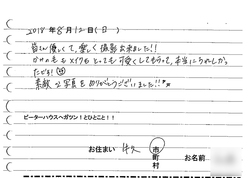 2018年8月12日(日)
皆さん優しくて、楽しく撮影出来ました!!
かみの毛もメイクもとっても可愛くしてもらって、本当にうれしかったです!
素敵な写真をありがとうございました!!
ピーターハウスへガツン!とひとこと!!
お住まい
市
町
村
お名前